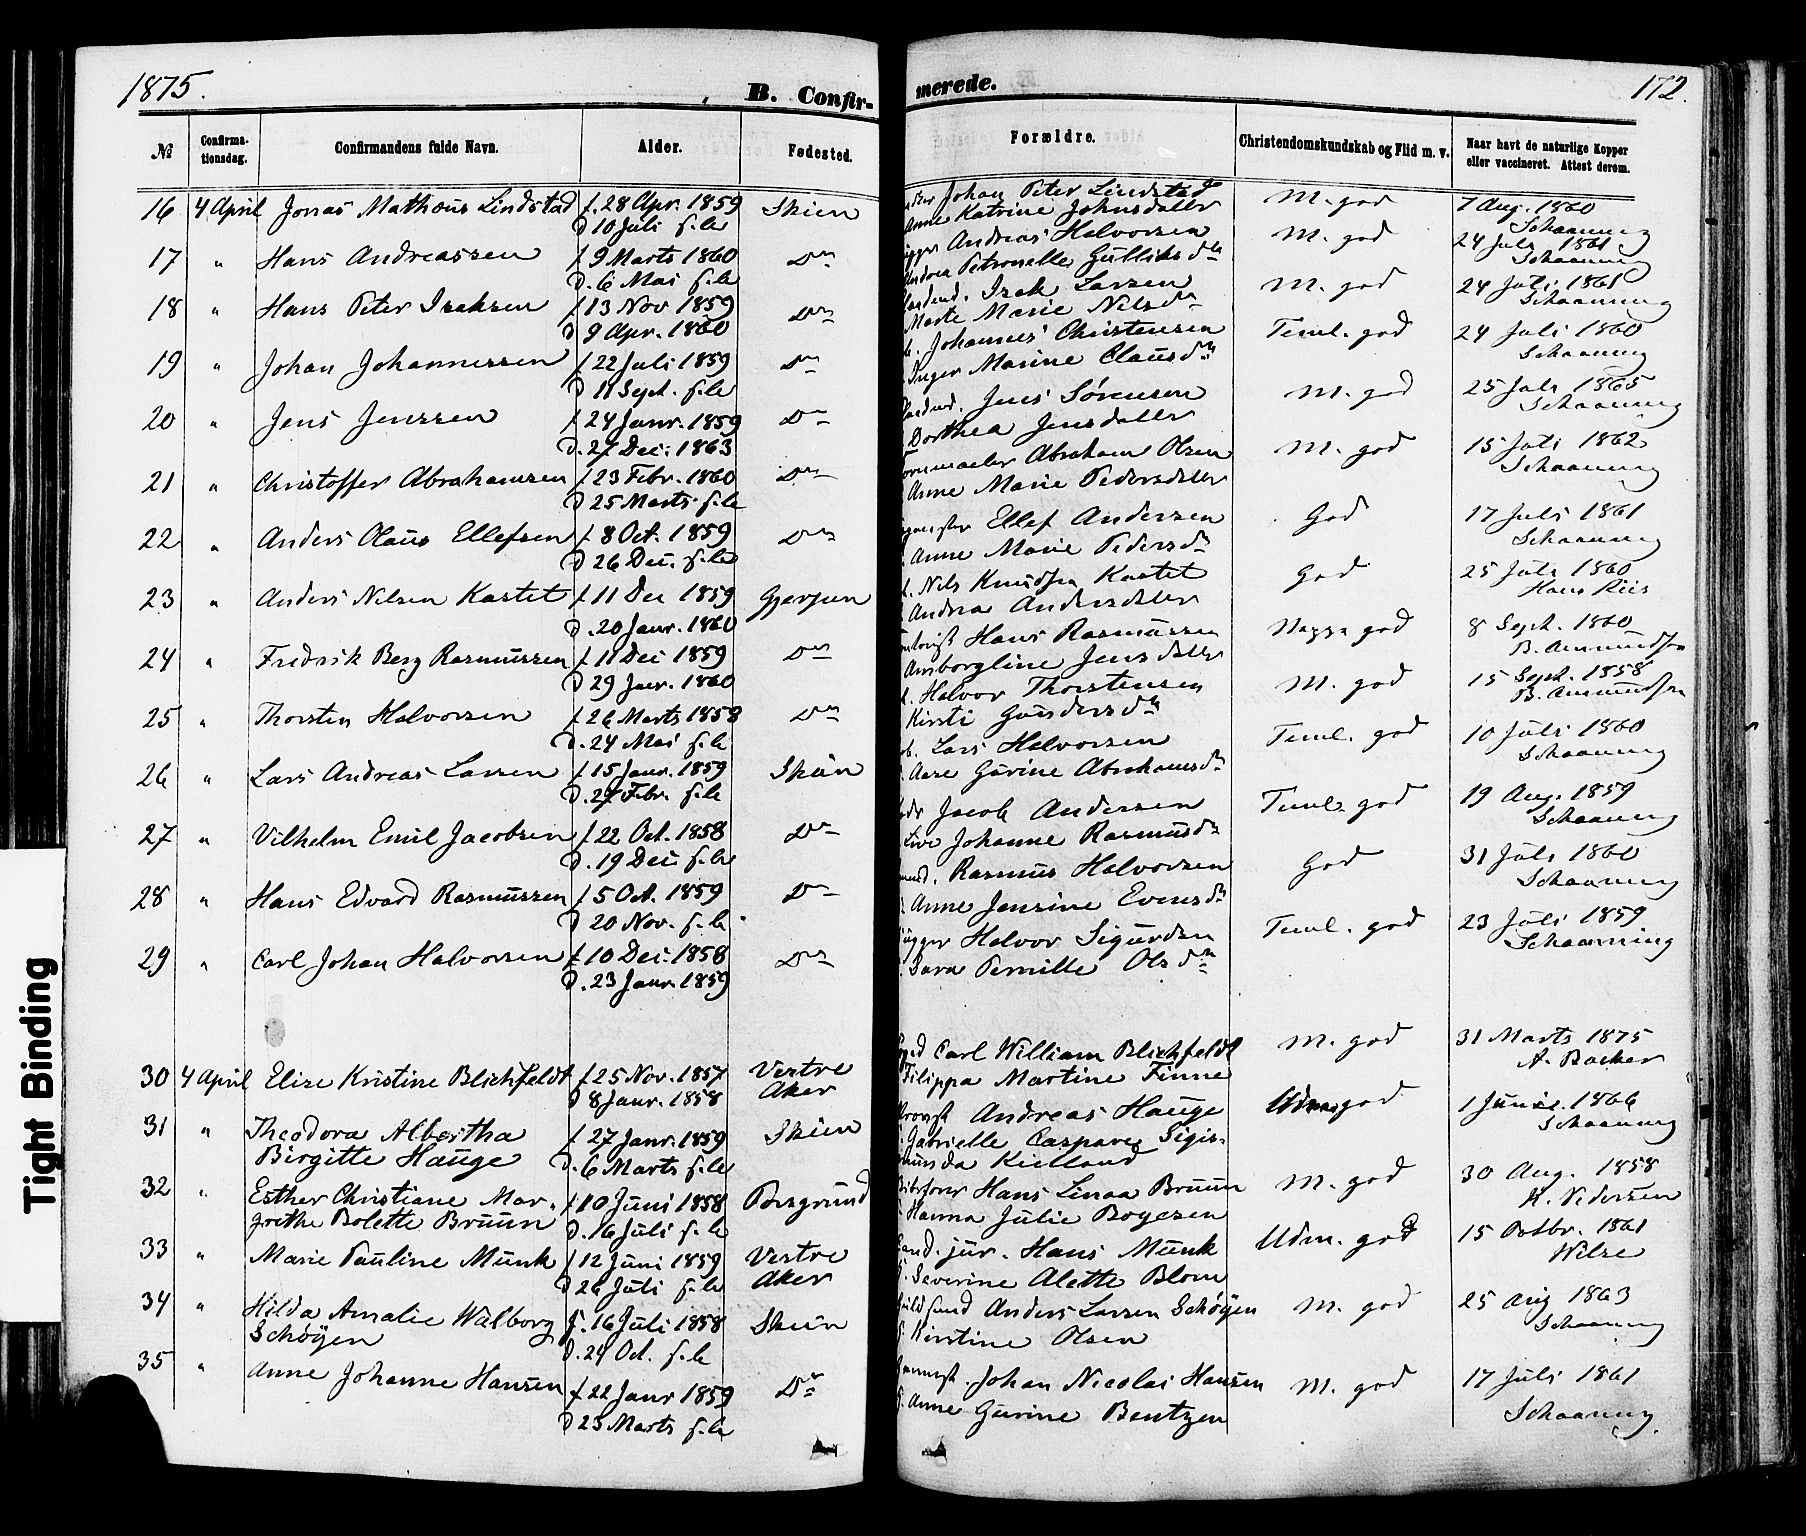 1875.
B. Confir-
merede.
172.
№
Confirma-
tionsdag.
Confirmandens fulde Navn.
Alder.
Fødested.
Forældre.
Christendomskundskab og Flid m. v.
Naar havt de naturlige Kopper
eller vaccineret. Attest derom.
16 4 April Jonas Mathæus Lindstad f. 28 Apr. 1859 Skien
d 10 Juli s. A.
Johan Peter Lindstad M. god 7 Aug. 1860
Anne Katrine Johnsdatter Schaaning
17 " Hans Andreassen f 9 Marts 1860 Do
d. 6 Mai s. A.
Andreas Halvorsen M. god 24 Juli 1861
Andrea Petronelle Gulliksdtr Schaaning
18 " Hans Peter Isaksen f 13 Nov 1859 Do
d 9 Apr. 1860
Isak Larsen M. god 24 Juli 1861
Marte Marie Nilsdtr Schaaning
19 " Johan Johannessen f 22 Juli 1859 Do
d 11 Sept. s. A.
Johannes Christensen Teml. god 24 Juli 1860
Inger Marine Clausdtr Schaaning
20 " Jens Jenssen f 24 Janr. 1859 Do
d. 27 Dec. 1863
Jens Sørensen M. god 25 Juli 1865
Dorthea Jensdatter Schaaning
21 " Christoffer Abrahamsen f 23 Febr. 1860 Do
d 25 Marts s. A.
Abraham Olsen M. god 15 Juli 1862
Anne Marie Pedersdatter Schaaning
22 " Anders Olaus Ellefsen f 8 Oct. 1859 Do
d 26 Dec. s. A.
Ellef Andersen God 17 Juli 1861
Anne Marie Pedersdtr Schaaning
23 " Anders Nilsen Kastet f 11 Dec 1859 Gjerpen
d. 20 Janr. 1860
Nils Knudsen Kastet God 25 Juli 1860
Andrea Andersdatter Hans Riis
24 " Fredrik Berg Rasmussen f 11 Dec 1859 Do
d 29 Janr. 1860
Hans Rasmussen god 8 Sept. 1860
Ansborgline Jensdatter B. Aamundsen
25 " Thorsten Halvorsen f 26 Marts 1858 Do
d. 24 Mai s. A.
Halvor Thorstensen M. god 15 Sept. 1858
Kirsti Gundersdtr B. Aamundsen
26 " Lars Andreas Larsen f 15 Janr. 1859 Skien
d. 27 Febr. s. A.
Lars Halvorsen Teml. god 10 Juli 1860
Aase Gurine Abrahamsdtr Schaaning
27 " Vilhelm Emil Jacobsen f 22 Oct. 1858 Do
d. 19 Dec. s. A.
Jacob Andersen Teml. god 19 Aug. 1859
Live Johanne Rasmusdtr Schaaning
28 " Hans Edvard Rasmussen f 5 Oct. 1859 Do
d 20 Nov. s. A.
Rasmus Halvorsen God 31 Juli 1860
Anne Jensine Evensdtr Schaaning
29 " Carl Johan Halvorsen f 10 Dec. 1858 Do
d. 23 Janr. 1859
Halvor Sigurdsen Teml. god 23 Juli 1859
Sara Pernille Olsdtr Schaanning
30 4 April Elise Kristine Blichfeldt f 25 Nov. 1857 Vestre
d 8 Janr. 1858 Aker
Carl William Blichfeldt M. god 31 Marts 1875
Filippa Martine Finne A. Backer
31 " Theodora Albertha f 27 Janr. 1859 Skien
Birgitte Hauge d. 6 Marts s. A.
Provst Andreas Hauge Udm. god 1 Juni. 1866
Gabrielle Caspare Sigis- Schaaning
munda Kielland
32 " Esther Christiane Mar- f 10 Juni 1858 Porsgrund
grethe Bolette Bruun d. 16 Juli s. A.
Hans Linaa Bruun M. god 30 Aug. 1858
Hanna Julie Boyesen H. Pedersen
33 " Marie Pauline Munk f 12 Juni 1859 Vestre
d 26 Juli s. A. Aker
Cand. jur. Hans Munk Udm. god 15 Octbr. 1861
Severine Alette Blom Wilse
34 " Hilda Amalie Walborg f. 16 Juli 1858 Skien
Schøyen d. 24 Oct. s. A.
Guldsmed Anders Larsen Schøyen M. god 25 Aug 1863
Kirstine Olsen Schaaning
35 " Anne Johanne Hansen f 22 Janr 1859 Do
d 25 Marts s. A.
Johan Nicolai Hansen M. god 17 Juli 1861
Anne Gurine Bentzen Schaaning.
Tight Binding